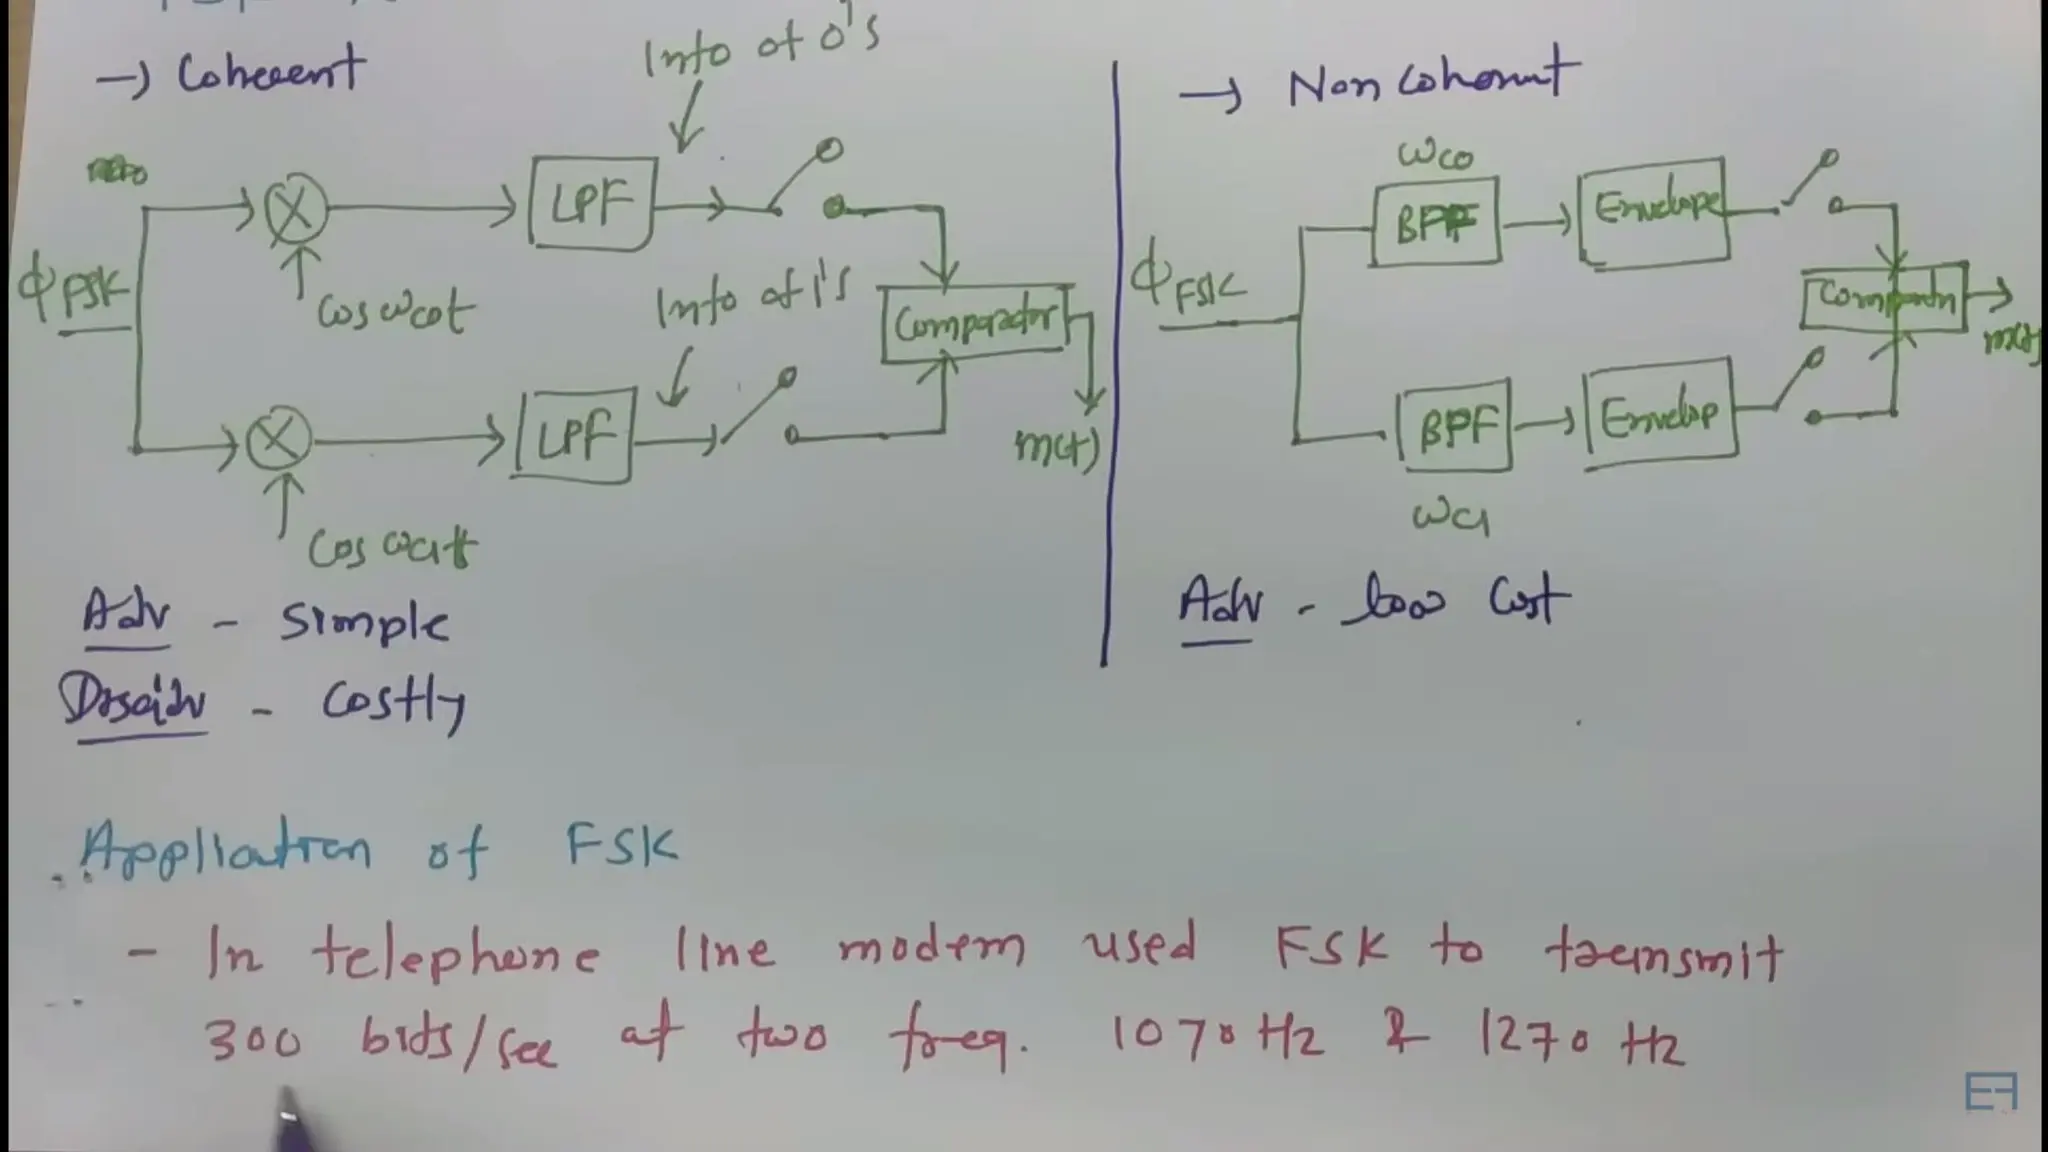 → Coherent
Info of 0's
LPF
ϕFSK
Cos ωc0t
Info of 1's
Comparator
LPF
m(t)
Cos ωc1t
Adv - Simple
Disadv - Costly
→ Non Coherent
ωc0
BPF
Envelope
ϕFSK
m(t)
BPF
Envelop
ωc1
Adv - low Cost
Application of FSK
- In telephone line modem used FSK to transmit
300 bits/sec at two freq. 1070 Hz & 1270 Hz
EF